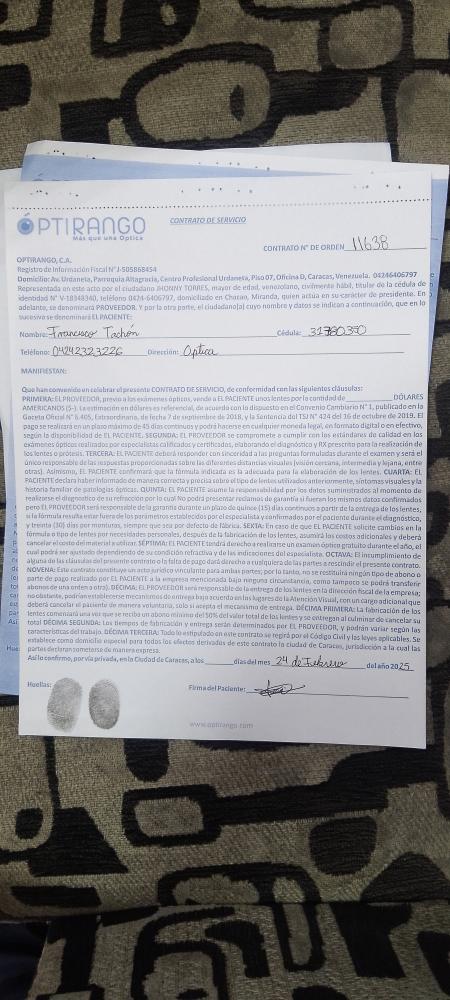 ÓPTIRANGO
Más que una Óptica
CONTRATO DE SERVICIO
CONTRATO Nº DE ORDEN 11638
OPTIRANGO, C.A.
Registro de Información Fiscal Nº J-505868454
Domicilio: Av. Urdaneta, Parroquia Altagracia, Centro Profesional Urdaneta, Piso 07, Oficina D, Caracas, Venezuela. 04246406797
Representada en este acto por el ciudadano JHONNY TORRES, mayor de edad, venezolano, civilmente hábil, titular de la cédula de
identidad Nº V-18348340, teléfono 0424-6406797, domiciliado en Chacao, Miranda, quien actúa en su carácter de presidente. En
adelante, se denominará PROVEEDOR. Y por la otra parte, el ciudadano(a) cuyo nombre y datos se indican a continuación, que en lo
sucesivo se denominará EL PACIENTE:
Nombre: Francisco Tachón Cédula: 31780350
Teléfono: 04242323226 Dirección: Optica
MANIFIESTAN:
Que han convenido en celebrar el presente CONTRATO DE SERVICIO, de conformidad con las siguientes cláusulas:
PRIMERA: EL PROVEEDOR, previo a los exámenes ópticos, vende a EL PACIENTE unos lentes por la cantidad de DÓLARES
AMERICANOS ($-). La estimación en dólares es referencial, de acuerdo con lo dispuesto en el Convenio Cambiario Nº 1, publicado en la
Gaceta Oficial Nº 6.405, Extraordinaria, de fecha 7 de septiembre de 2018, y la Sentencia del TSJ Nº 424 del 16 de octubre de 2019. El
pago se realizará en un plazo máximo de 45 días continuos y podrá hacerse en cualquier moneda legal, en formato digital o en efectivo,
según la disponibilidad de EL PACIENTE. SEGUNDA: EL PROVEEDOR se compromete a cumplir con los estándares de calidad en los
exámenes ópticos realizados por especialistas calificados y certificados, elaborando el diagnóstico y RX prescrita para la realización de
los lentes o prótesis. TERCERA: EL PACIENTE deberá responder con sinceridad a las preguntas formuladas durante el examen y será el
único responsable de las respuestas proporcionadas sobre las diferentes distancias visuales (visión cercana, intermedia y lejana, entre
otras). Asimismo, EL PACIENTE confirmará que la fórmula indicada es la adecuada para la elaboración de los lentes. CUARTA: EL
PACIENTE declara haber informado de manera correcta y precisa sobre el tipo de lentes utilizados anteriormente, síntomas visuales y la
historia familiar de patologías ópticas. QUINTA: EL PACIENTE asume la responsabilidad por los datos suministrados al momento de
realizarse el diagnóstico de su refracción por lo cual no podrá presentar reclamos de garantía si fueran los mismos datos confirmados
pero EL PROVEEDOR será responsable de la garantía durante un plazo de quince (15) días continuos a partir de la entrega de los lentes,
si la fórmula resulta estar fuera de los parámetros establecidos por el especialista y confirmados por el paciente durante el diagnóstico,
y treinta (30) días por monturas, siempre que sea por defecto de fábrica. SEXTA: En caso de que EL PACIENTE solicite cambios en la
fórmula o tipo de lentes por necesidades personales, después de la fabricación de los lentes, asumirá los costos adicionales y deberá
cancelar el costo del material a utilizar. SEPTIMA: EL PACIENTE tendrá derecho a realizarse un examen óptico gratuito durante el año, el
cual podrá ser ajustado dependiendo de su condición refractiva y de las indicaciones del especialista. OCTAVA: El incumplimiento de
alguna de las cláusulas del presente contrato o la falta de pago dará derecho a cualquiera de las partes a rescindir el presente contrato.
NOVENA: Este contrato constituye un acto jurídico vinculante para ambas partes; por lo tanto, no se restituirá ningún tipo de abono o
parte de pago realizado por EL PACIENTE a la empresa mencionada bajo ninguna circunstancia, como tampoco se podrá transferir
abonos de una orden a otra). DÉCIMA: EL PROVEEDOR será responsable de la entrega de los lentes en la dirección fiscal de la empresa;
no obstante, podrían establecerse mecanismos de entrega bajo acuerdo en los lugares de la Atención Visual, con un cargo adicional que
deberá cancelar el paciente de manera voluntaria, solo si acepta el mecanismo de entrega. DÉCIMA PRIMERA: La fabricación de los
lentes comenzará una vez que se recibe un abono mínimo del 50% del valor total de los lentes y se entregan al culminar de cancelar su
total DÉCIMA SEGUNDA: Los tiempos de fabricación y entrega serán determinados por EL PROVEEDOR, y podrán variar según las
características del trabajo. DÉCIMA TERCERA: Todo lo estipulado en este contrato se regirá por el Código Civil y las leyes aplicables. Se
establece como domicilio especial para todos los efectos derivados de este contrato la ciudad de Caracas, jurisdicción a la cual las
partes declaran someterse de manera expresa.
Así lo confirmo, por vía privada, en la Ciudad de Caracas, a los días del mes 24 de Febrero del año 2025
Huellas: Firma del Paciente:
www.optirango.com